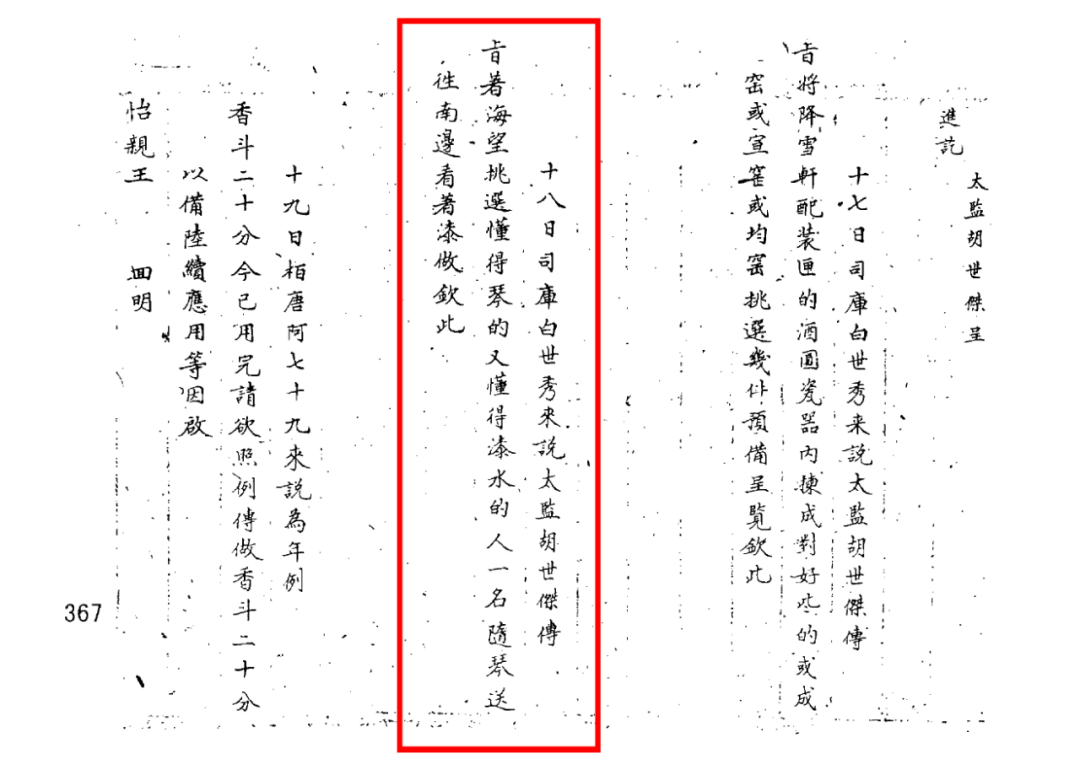 太監胡世傑呈
進訖
十七日司庫白世秀来説太監胡世傑傳
旨將降雪軒配装匣的酒圓瓷器內揀成對好些的或成
窑或宣窑或均窑挑選幾件預備呈覧欽此
十八日司庫白世秀来説太監胡世傑傳
旨著海望挑選懂得琴的又懂得漆水的人一名隨琴送
徃南邊看著漆做欽此
十九日栢唐阿七十九來説為年例
香斗二十分今已用完請欲照例傳做香斗二十分
以備陸續應用等因啟
怡親王 回明
367